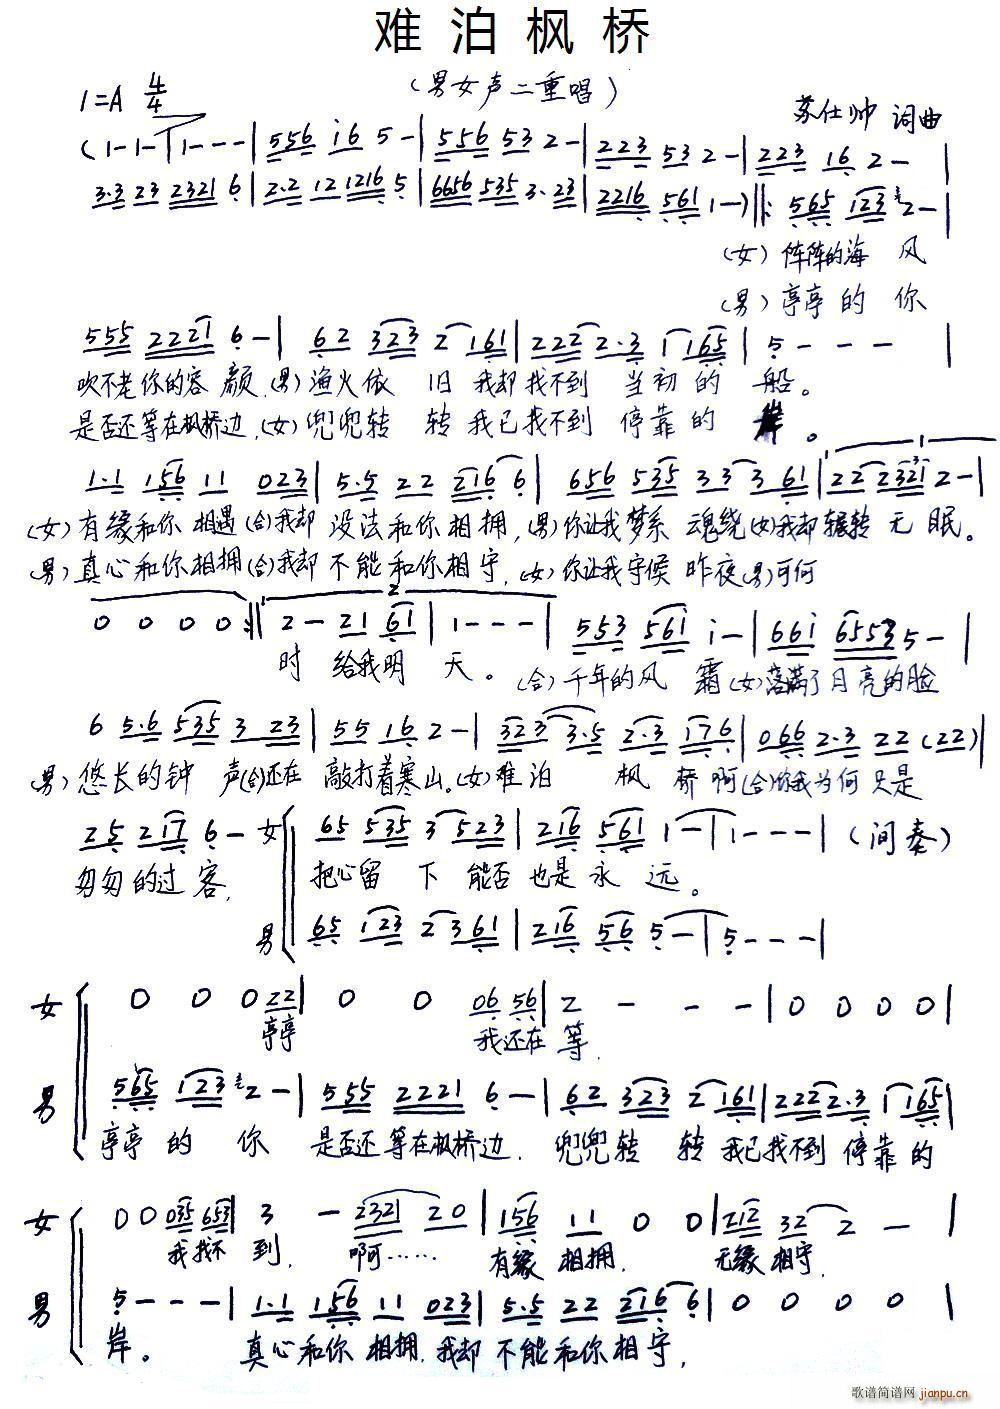 难泊枫桥
(男女声二重唱)
1=A 4/4
苏仕帅 词曲
(1-1-|1---|556 i6 5-|556 53 2-|223 53 2-|223 16 2-|
3·3 23 2321 6|2·2 12 1216 5|6656 535 3·23|2216 561 1-)‖:565 123 2-|
(女)阵阵的海 风
(男)亭亭的 你
555 2221 6-|62 323 2 161|222 2·3 1 165|5---|
吹不老你的容颜,(男)渔火依 旧 我却找不到 当初的 船。
是否还等在枫桥边,(女)兜兜转 转 我已找不到 停靠的 岸。
1·1 156 11 023|5·5 22 216 6|656 535 33 3 61|22 2321 2-|
(女)有缘和你 相遇(合)我却 没法和你相拥,(男)你让我梦系 魂绕(女)我却辗转 无 眠。
(男)真心和你相拥(合)我却 不能和你相守,(女)你让我守侯 昨夜(男)可何
0 0 0 0:‖2-21 61|1---|553 561 i-|66i 6553 5-|
时 给我明 天。(合)千年的风 霜(女)落满了月亮的脸
6 5·6 535 3 23|55 16 2-|323 3·5 2·3 176|066 2·3 22 (22)|
(男)悠长的钟 声(合)还在 敲打着寒山。(女)难泊 枫 桥啊(合)你我为何只是
25 217 6- 女 65 535 3 523|216 561 1-|1---|(间奏)
匆匆的过客, 把心留 下 能否也是永 远。
男 65 123 2 361|216 56 5-|5---|
女 0 0 0 22|0 0 06 56|2 - - -|0 0 0 0|
亭亭 我还在 等,
男 565 123 2-|555 2221 6-|62 323 2 161|222 2·3 1 165|
亭亭的 你 是否还等在枫桥边, 兜兜转 转 我已找不到 停靠的
女 0 0 035 653|3 - 2321 20|156 11 0 0|212 32 2 -|
我找不 到, 啊…… 有缘 相拥, 无缘相守,
男 5---|1·1 156 11 023|5·5 22 216 6|0 0 0 0|
岸。 真心和你 相拥,我却 不能和你相守,
歌谱简谱网 jianpu.cn